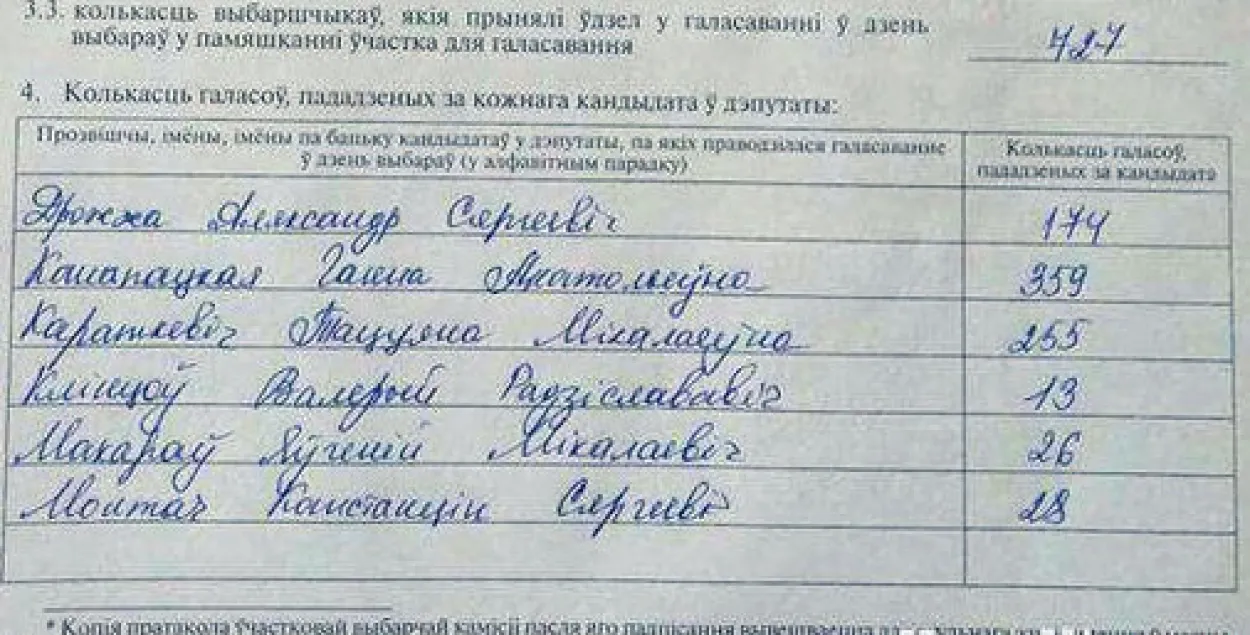 3.3. колькасць выбаршчыкаў, якія прынялі ўдзел у галасаванні ў дзень
выбараў у памяшканні ўчастка для галасавання
727
4. Колькасць галасоў, пададзеных за кожнага кандыдата ў дэпутаты:
Прозвішчы, імёны, імёны па бацьку кандыдатаў у дэпутаты, па якіх праводзілася галасаванне
ў дзень выбараў (у алфавітным парадку)
Колькасць галасоў,
пададзеных за кандыдата
Дрожжа Аляксандр Сяргеевіч 174
Канапацкая Ганна Анатольеўна 359
Караткевіч Таццяна Мікалаеўна 255
Клінцоў Валерый Радзіслававіч 13
Макараў Яўгеній Мікалаевіч 26
Моштач Канстанцін Сяргеевіч 28
* Копія пратакола ўчастковай выбарчай камісіі пасля яго падпісання вывешваецца для